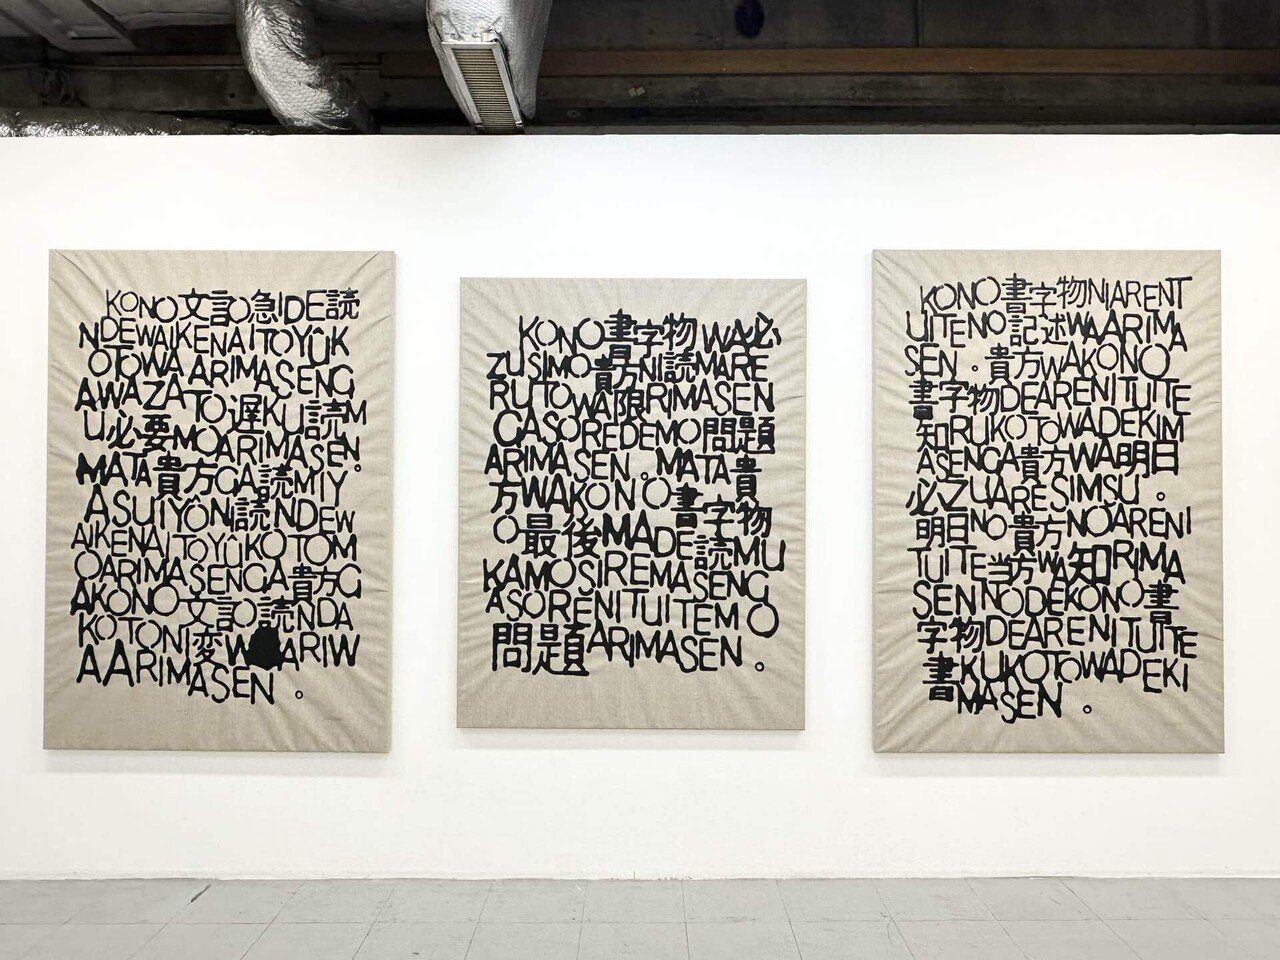 KONO文記急IDE読
NDEWAIKENAITOYÛK
OTOWA ARIMASENG
AWAZATO遅KU読M
U必要MOARIMASEN。
MATA貴方GA読MIY
ASUIYÔNI読NDEW
AIKENAITOYÛKOTOM
OARIMASENGA貴方G
AKONO文記O読NDA
KOTONI変WAARIW
AARIMASEN。
KONO書字物WA必
ZUSIMO貴方NI読MARE
RUTOWA限RIMASEN
GASOREDEMO問題
ARIMASEN。MATA貴
方WAKONO書字物
O最後MADE読MU
KAMOSIREMASENG
ASORENITUITEMO
問題ARIMASEN。
KONO書字物NIARENT
UITENO記述WAARIMA
SEN。貴方WAKONO
書字物DEARENITUITE
知RUKOTOWADEKIM
ASENGA貴方WA明日
必ZUARESIMSU。
明日NO貴方NOARENI
TUITE当方WA知RIMA
SENNODEKONO書
字物DEARENITUITE
書KUKOTOWADEKI
MASEN。